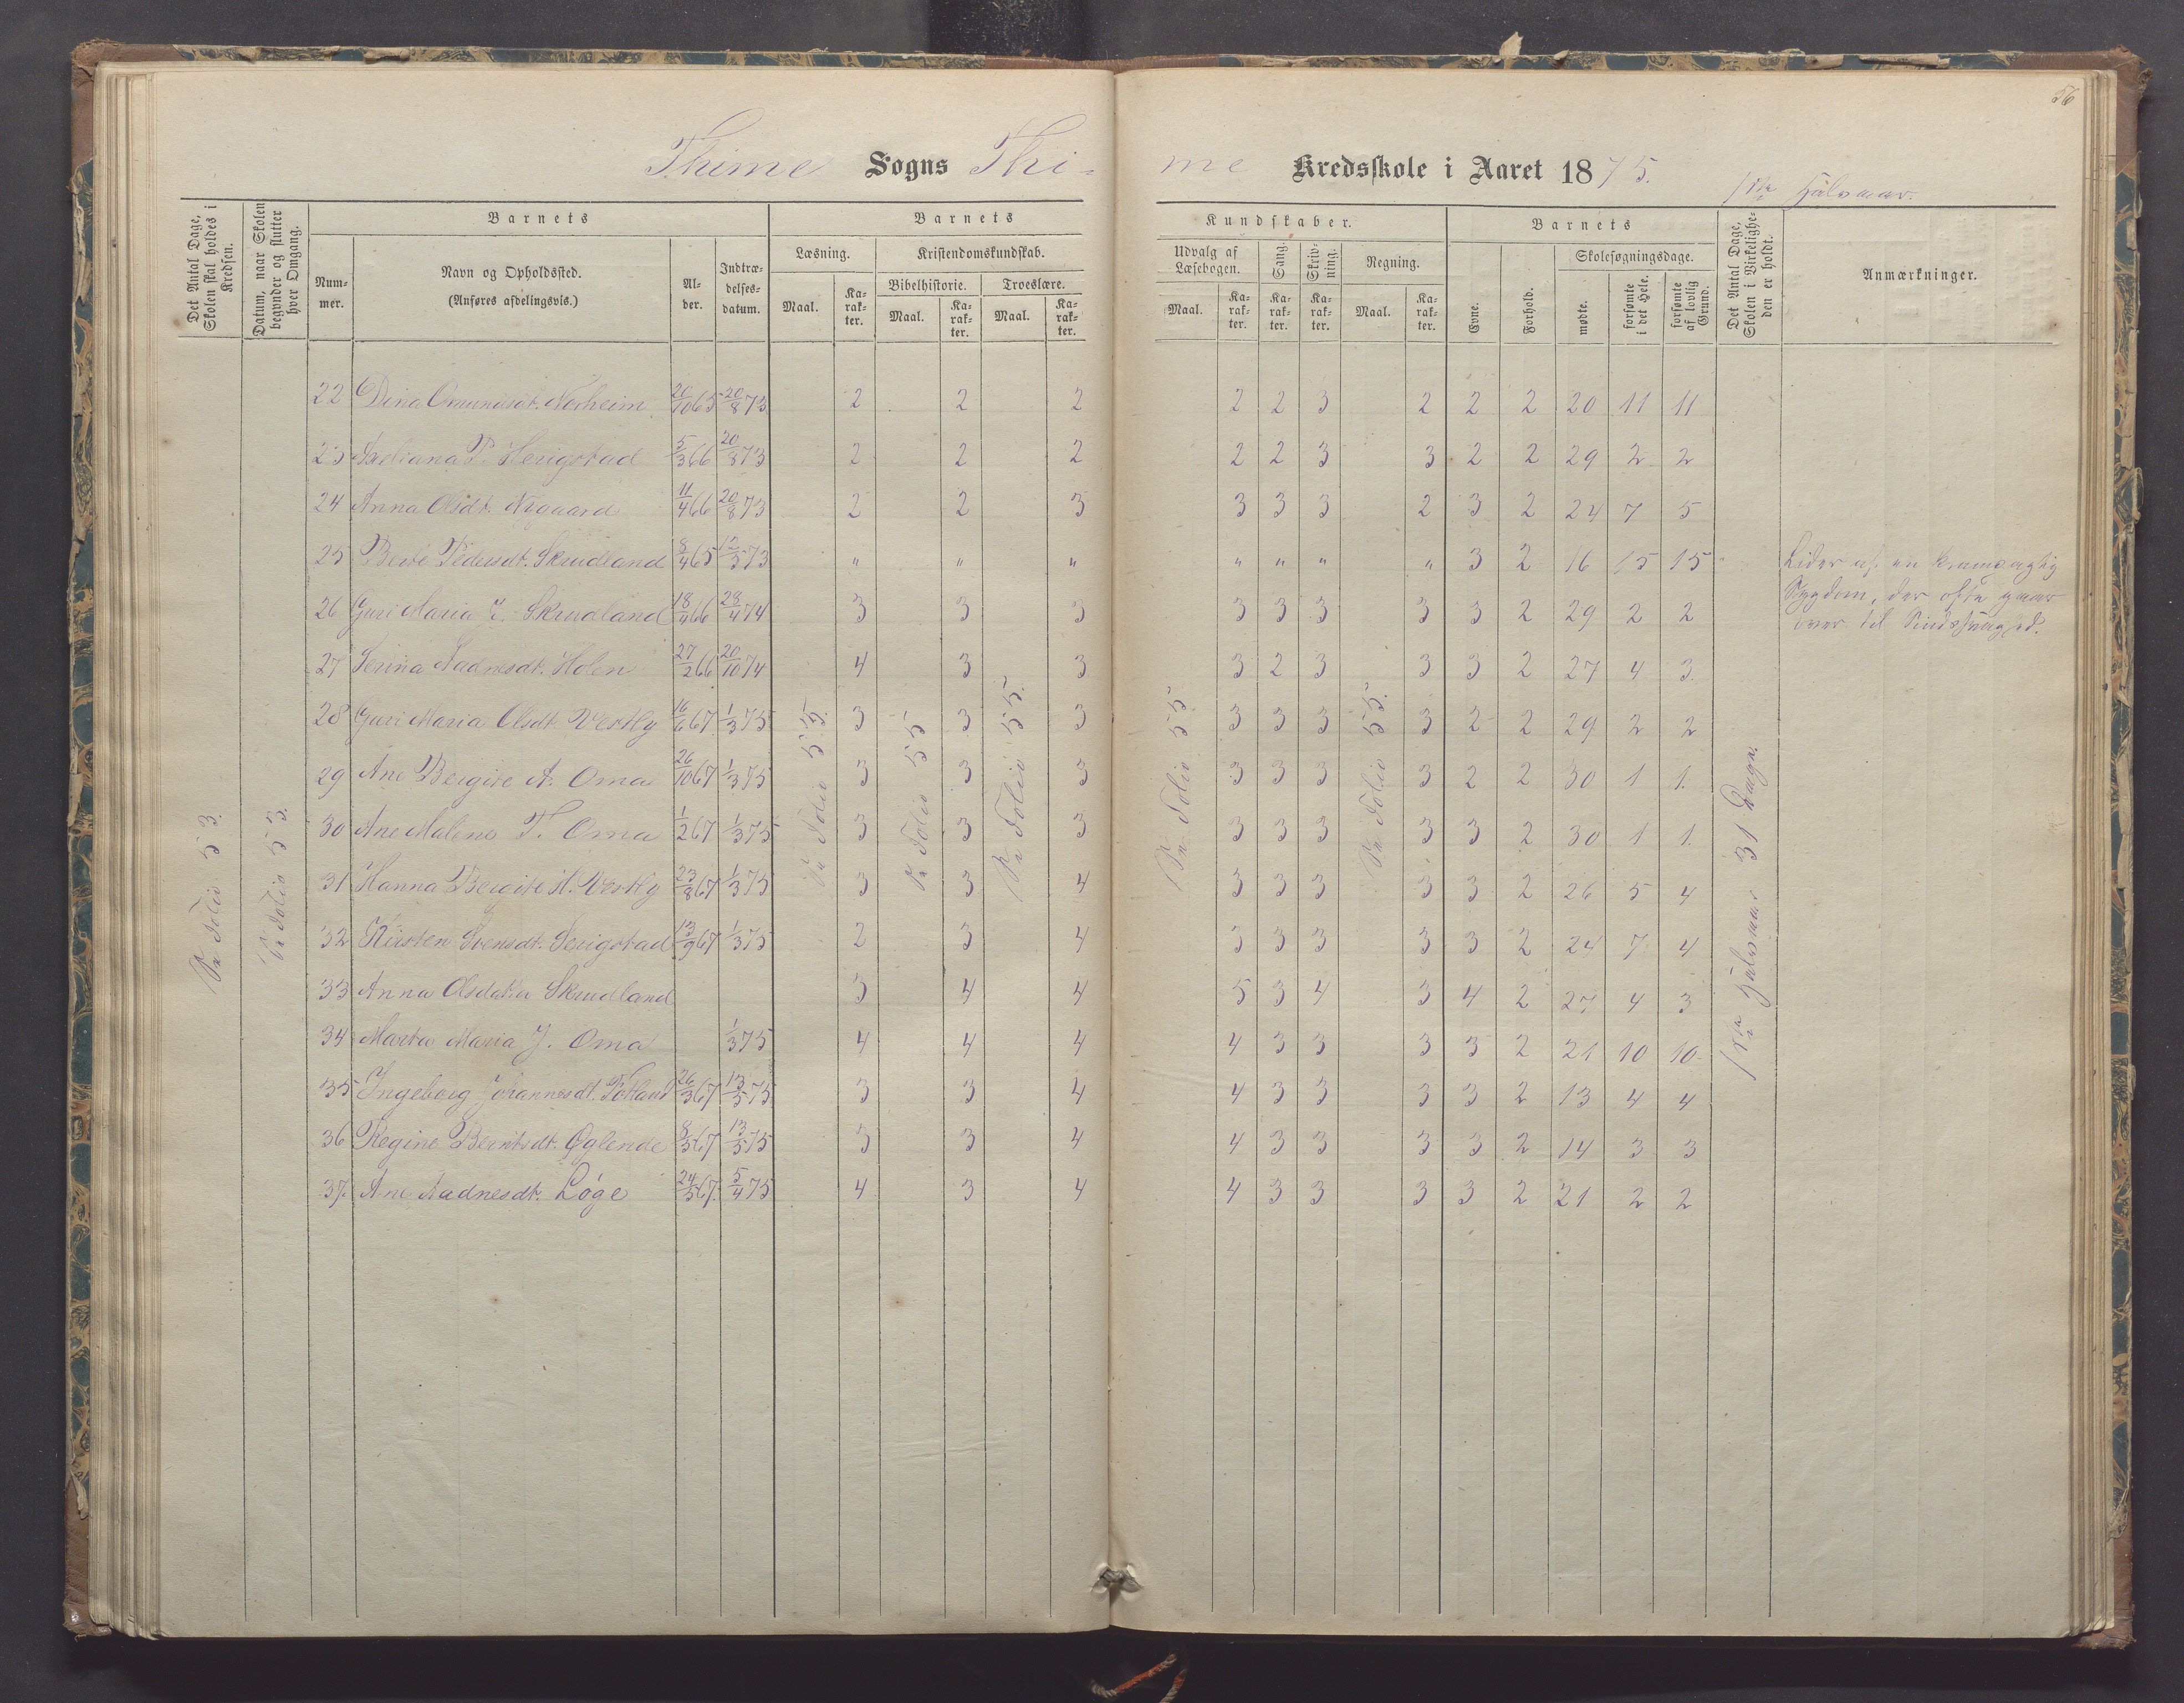 56
Thime Sogns Thi-
me Kredsskole i Aaret 1875. 1ste Halvaar.
Det Antal Dage, Skolen skal holdes i Kredsen.
Datum, naar Skolen begynder og slutter hver Omgang.
Barnets
Nummer.
Navn og Opholdssted.
(Anføres afdelingsvis.)
Alder.
Indtrædelsesdatum.
Barnets
Læsning.
Maal.
Karakter.
Kristendomskundskab.
Bibelhistorie.
Maal.
Karakter.
Troeslære.
Maal.
Karakter.
Kundskaber.
Udvalg af Læsebogen.
Maal.
Karakter.
Sang.
Karakter.
Skrivning.
Karakter.
Regning.
Maal.
Karakter.
Barnets
Evne.
Forhold.
Skolesøgningsdage.
mødte.
forsømte i det Hele.
forsømte af lovlig Grund.
Det Antal Dage, Skolen i Virkeligheden er holdt.
Anmærkninger.
22 Dina Omundsdt. Norheim 20/10 65 20/8 73 2 2 2 2 2 3 2 2 2 20 11 11
23 P. Herigstad 5/3 66 20/8 73 2 2 2 2 2 3 3 2 2 29 2 2
24 Anna Olsdt. Nygaard 11/4 66 20/8 73 2 2 3 3 3 3 2 3 2 24 7 5
25 Berte Pedersdt. Skrudland 8/4 65 12/5 73 " " " " " " " 3 2 16 15 15 Lider af en krampagtig
26 Guri Maria T. Skrudland 18/4 66 28/4 74 3 3 3 3 3 3 3 3 2 29 2 2 Sygdom, der ofte gaar
over til Sindssvaghed.
27 Serina Aadnesdt. Holen 27/2 66 20/10 74 4 3 3 3 2 3 3 3 2 27 4 3.
28 Guri Maria Olsdt. Vestly 16/6 67 1/3 75 3 3 3 3 3 3 3 2 2 29 2 2
29 Ane Bergite A. Oma 26/10 67 1/3 75 3 3 3 3 3 3 3 2 2 30 1 1.
30 Ane Malene T. Oma 1/2 67 1/3 75 3 3 3 3 3 3 3 3 2 30 1 1.
31 Hanna Bergite H. Vestly 23/8 67 1/3 75 3 3 4 3 3 3 3 3 2 26 5 4
32 Kirsten Svensdt. Serigstad 13/9 67 1/3 75 2 3 4 3 3 3 3 3 2 24 7 4
33 Anna Olsdatter Skrudland 3 4 4 5 3 4 3 4 2 27 4 3
34 Marta Maria J. Oma 1/3 75 4 4 4 4 3 3 3 3 2 21 10 10
35 Ingeborg Johannesdt. Fotland 26/3 67 13/5 75 3 3 4 4 3 3 3 3 2 13 4 4
36 Regine Berntsdt. Øglende 8/5 67 13/5 75 3 3 4 4 3 3 3 3 2 14 3 3
37. Ane Aadnesdt. Løge 24/5 67. 5/4 75 4 3 4 4 3 3 3 3 2 21 2 2
Se Folio 53.
Se Folio 53.
Se Folio 55.
Se Folio 55
Se Folio 55.
Se Folio 55
Se Folio 55.
1ste Halvaar 31 Dage.